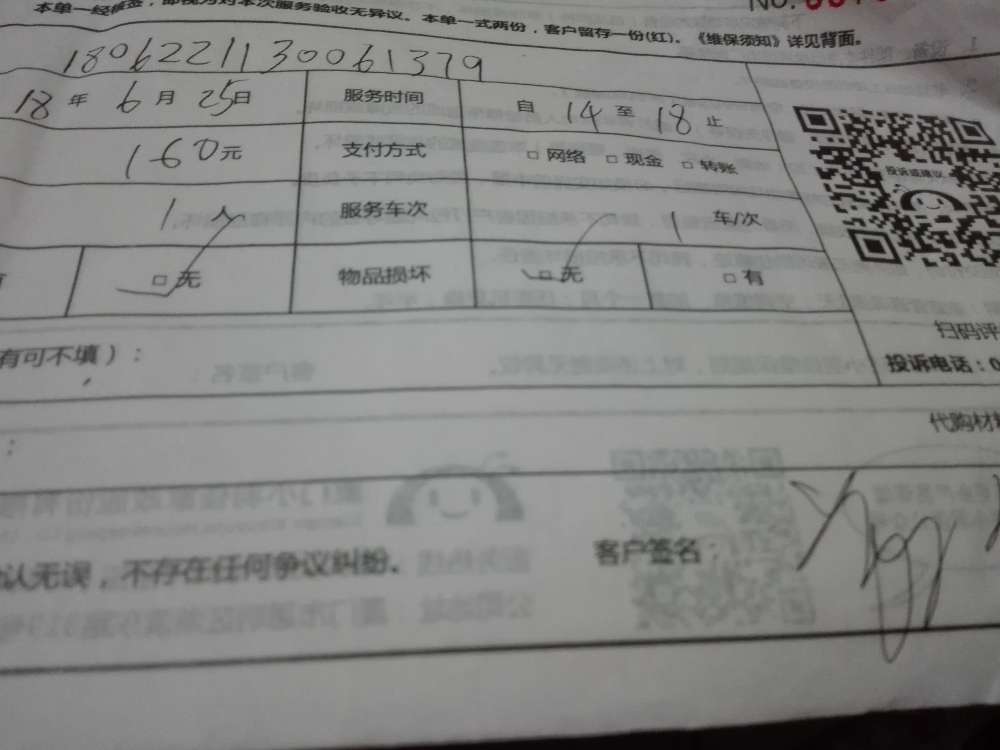 本单一经修签，即视为对本次服务验收无异议。本单一式两份，客户留存一份(红)。《维保须知》详见背面。
NO.
180622113006 1379
18年6月25日 服务时间 自14至18止
160元 支付方式 □网络 □现金 □转账
1人 服务车次 1车/次
□无 物品损坏 □无 □有
投诉或建议
扫码评
有可不填）：
投诉电话：0
代购材料
：
认无误，不存在任何争议纠纷。 客户签名：